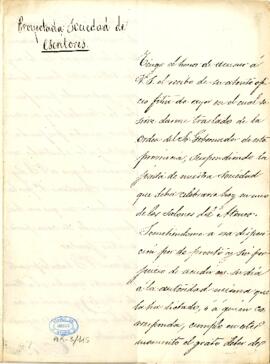 Proyectada Sociedad de
Escritores.
Tengo el honor de acusar á
V.S. el recibo de su atento ofi
cio fecha de ayer en el cual se
sirve darme traslado de la
orden del Sr. Gobernador de esta
provincia, suspendiendo la
junta de nuestra Sociedad
que debía celebrarse hoy en uno
de los Salones del Ateneo.
Sometiéndome á esa disposi
ción por de pronto y sin per
juicio de acudir en su día
á la autoridad misma que
la ha dictado, ó á quien co
rresponda, cumplo en este
momento el grato deber de